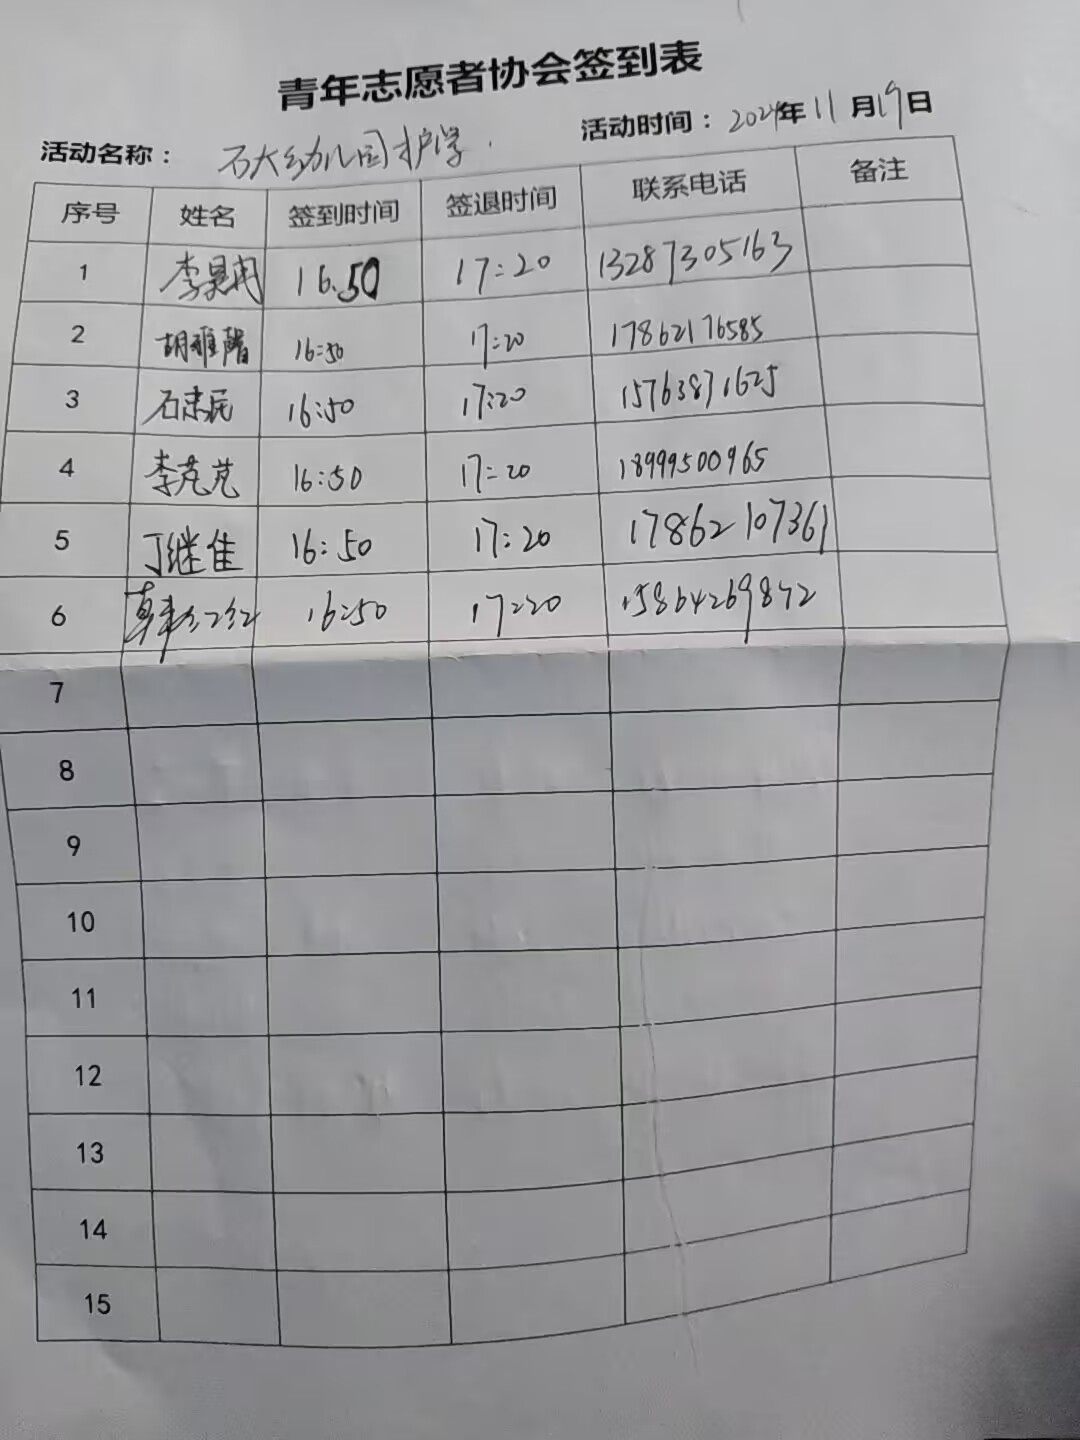 青年志愿者协会签到表
活动名称： 石大幼儿园护学 活动时间：2024年11月19日
序号 姓名 签到时间 签退时间 联系电话 备注
1 李昊 16:50 17:20 13287305163
2 胡雅馨 16:50 17:20 17862176585
3 石 16:50 17:20 15763871625
4 李芃芃 16:50 17:20 18999500965
5 丁继佳 16:50 17:20 17862107361
6 16:50 17:20 15864269872
7
8
9
10
11
12
13
14
15